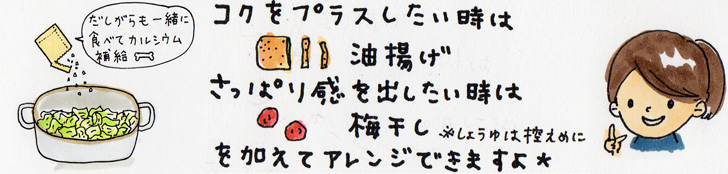 だしがらも一緒に
食べてカルシウム
補給
コクをプラスしたい時は
油揚げ
さっぱり感を出したい時は
梅干し ※しょうゆは控えめに
を加えてアレンジできますよ★